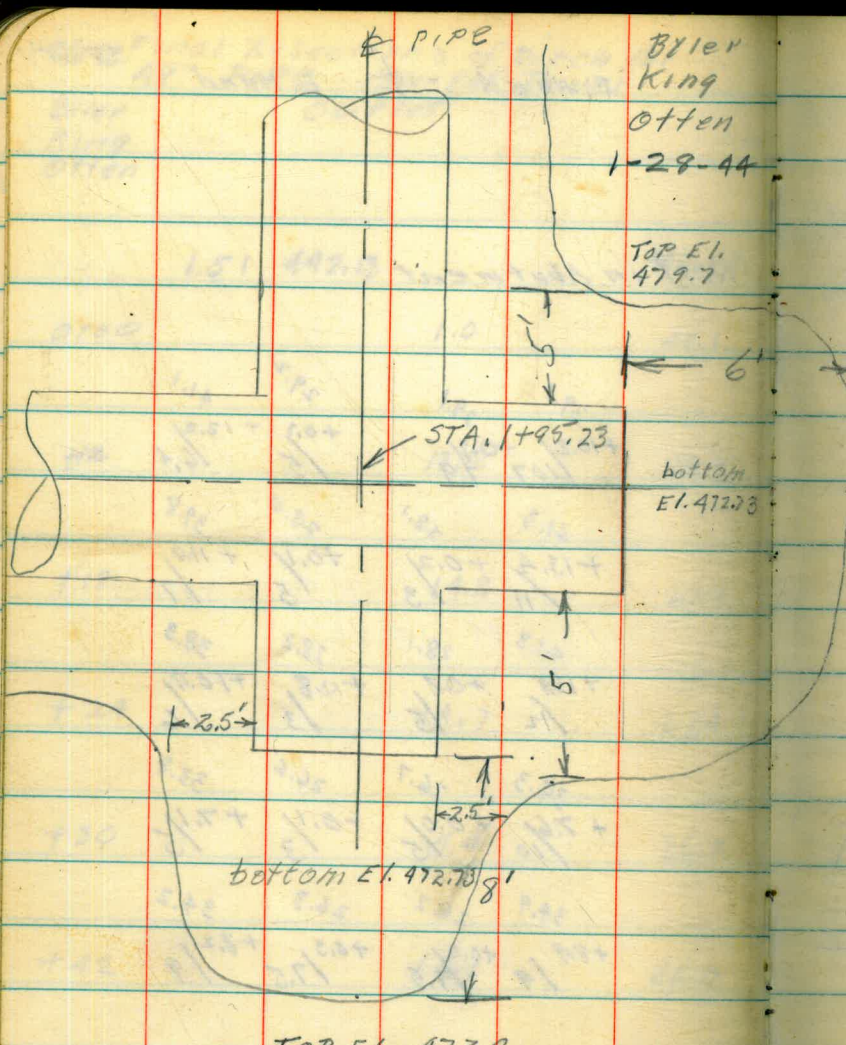 ℄ PIPE
Byler
King
Otten
1-28-44
TOP El.
479.7
5'
6'
STA. 1+95.23
bottom
El. 472.73
5'
2.5'
2.5'
bottom El. 472.73
8'
TOP El.